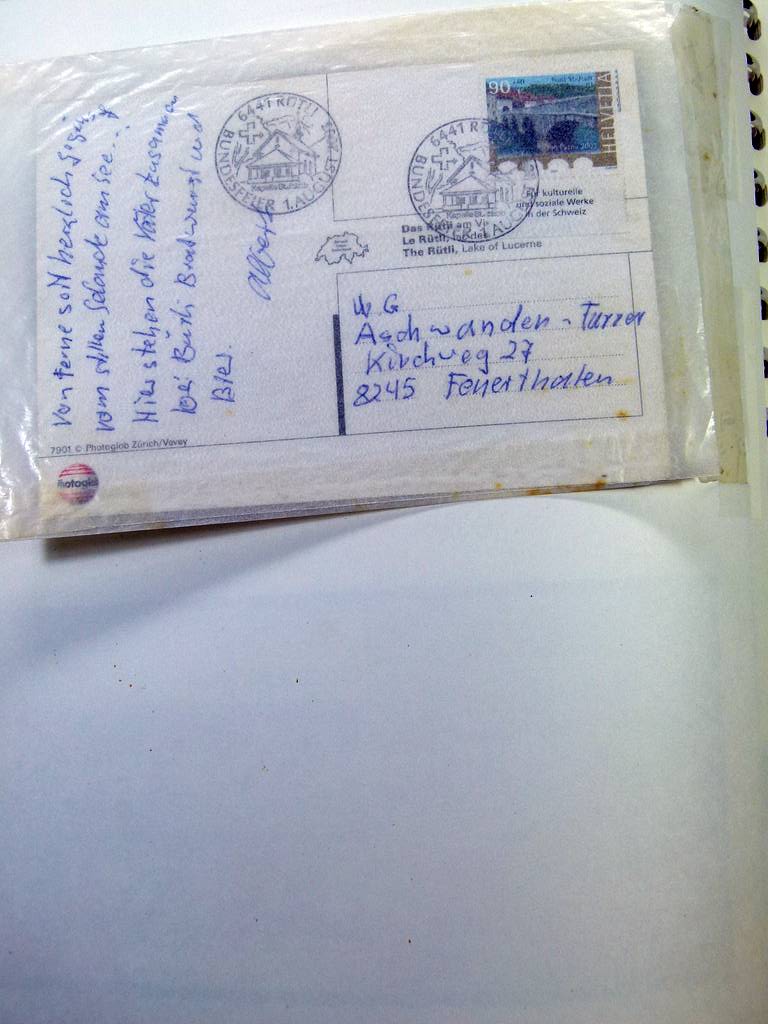 Von ferne sei herzlich
vom stillen Gelände am See...
Hier stehen die Väter zusammen
bei Rütli Bratwurst und
Bier.
Albert
6441 RÜTLI
BUNDESFEIER 1. AUGUST
Kapelle
6441 RÜTLI
BUNDESFEIER 1. AUGUST
Kapelle
90
HELVETIA
kulturelle
und soziale Werke
in der Schweiz
Das Rütli am
Le Rütli,
The Rütli, Lake of Lucerne
Aschwanden - Furrer
Kirchweg 27
8245 Feuerthalen
7901 © Photoglob Zürich/Vevey
Photoglob